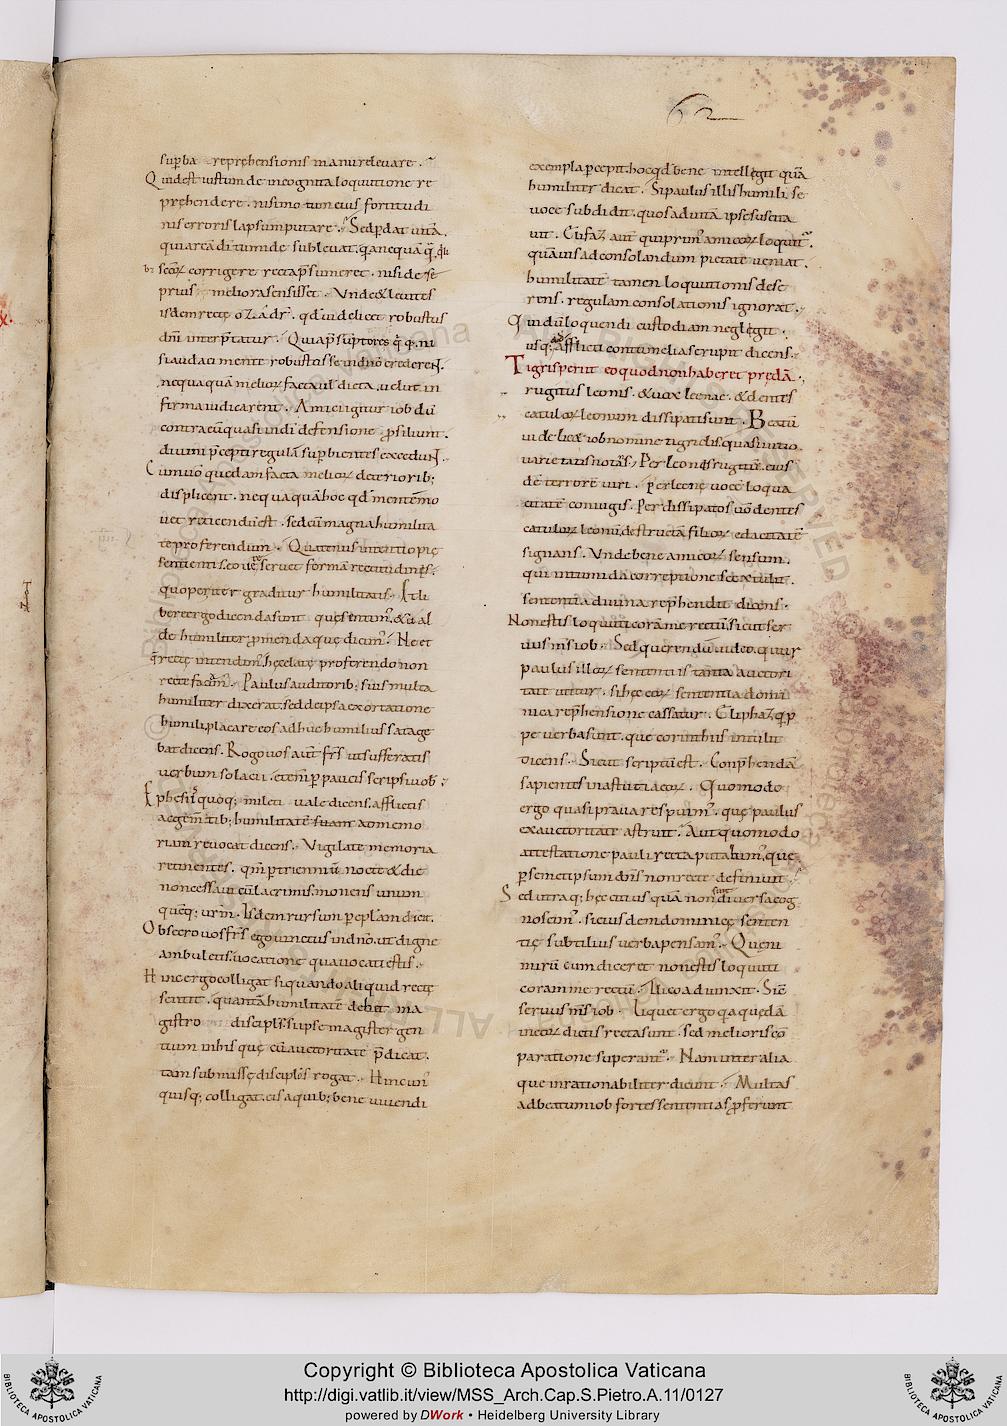 62
sup̱ba reprehensionis manu relevare.
Quid est iustum de incognita loquutione re
prehendere. nisi non
nis erroris lapsum putare. Sed perdat vitā.
b; secoꝝ corrigere recta p̄sumeret. nisi de se
prius meliora sensisset. Unde & leuites
dñi interp̄tatur. Quia p̄sūptores
nequaquā melioꝝ facta ul dicta. uelut in
firma iudicarent. Amici igitur iob dū
contra eū quasi in dī defensione ꝓsiliunt.
divini p̄cepti regulā sup̱bientes excedunt.
Cum uiro quedam facta melioꝝ deteriorib;
displicent. nequaquā hoc qđ mente m̄o
uet reticendū est. sed cū magna humilita
te proferendum. Quatenus intentio pię
quo perit̄ graditur humilitatis. Et li
bere ergo dicenda sunt quę sentim̄. & ual
de humilit̄ ꝓmenda quę dicim̄. Ne et
rectę intendim̄. hęc elate proferendo non
recte faciam̄. Paulus auditorib; suis multa
humiliter dixerat. sed de ipsa exortatione
humili. placare eos adhuc humilius satage
bat dicens. Rogo vos aut̄ fr̄s ut sufferatis
verbum solacii. etenī p̱ paucis scripsi uob̄.
Ephesiis quoq; mileti vale dicens. afflictis
ac gementib; humilitatē suam ad memo
riam revocat dicens. Vigilate memoria
retinentes. qm̄ p̱ trienniū nocte & die
non cessavi cū lacrimis monens unum
quēq; ur̄m. Iisdem rursum p̱ epl̄am dicit.
Obsecro vos fr̄s ego vinctus in dn̄o. ut digne
ambuletis. vocatione qua vocati estis.
Hinc ergo colligat si quando aliquid rectę
sentit. quantā humilitatē debet ma
gistro discipls̄. si ipse magister gen
tium in his quę cū auctoritate p̄dicat.
tam submissę discipl̄os rogat. Hinc un̄
quisq; colligat. eis a quib; bene vivendi
exempla p̱cepit. hoc qđ bene intellegit quā
humilit̄ dicat. Si paulus illis humili se
voce subdidit. quos ad vitā ipse suscita
vit. Elifaz aut̄ qui prim̄ amicoꝝ loquit̄.
quāvis ad consolandum pietate veniat.
humilitatē tamen loquutionis dese
rens. regulam consolationis ignorat.
Qui dū loquendi custodiam neglegit.
usq; ad afflicti contumelia erupit dicens.
Tigris periit eo quod non haberet prędā.
rugitus leonis. & vox leenae. & dentes
catuloꝝ leonum dissipati sunt. Beatū
videlicet iob nomine tigridis. quasi vitio
varietatis notās; Per leonis rugitū. eius
dē terrorē viri. per leenę vocē loqua
citatē coniugis. Per dissipatos vō dentes
catuloꝝ leonū. destructā filioꝝ edacitatē
signans. Unde bene amicoꝝ sensum.
qui in tumida correptione se extulit.
sententia divina rep̄hendit dicens.
Non estis loquuti coram me rectū. sicut ser
vus m̄s iob. Sed querendū video. quur
paulus illoꝝ sententiis tanta auctori
tate utitur. si hęc eoꝝ sententia domi
nica rep̄hensione cassatur. Eliphaz q̄p̱
pe verba sunt. que corinthiis intulit
dicens. Sicut scriptū est. Conp̄hendā
sapientes in astutia eoꝝ. Quomodo
ergo quasi prava respuim̄. quę paulus
ex auctoritate astruit. Aut quomodo
attestatione pauli recta putabim̄. que
p̱ semetipsum dn̄s non recte definivit.
Sed utraq; hęc citius quā non sint diversa cog
noscim̄. si eiusdem dominicę senten
tię subtilius verba pensam̄. Quę ni
mirū cum diceret non estis loquuti
coram me rectū. Ilico adiunxit. Sic̄
servus m̄s iob. Liquet ergo q̄a quędā
in eoꝝ dictis recta sunt. sed melioris cō
paratione superant̄. Nam inter alia
que inrationabiliter dicunt. Multas
ad beatum iob fortes sententias ꝓferunt
Copyright © Biblioteca Apostolica Vaticana
http://digi.vatlib.it/view/MSS_Arch.Cap.S.Pietro.A.11/0127
powered by DWork • Heidelberg University Library
BIBLIOTECA APOSTOLICA VATICANA
BIBLIOTECA APOSTOLICA VATICANA